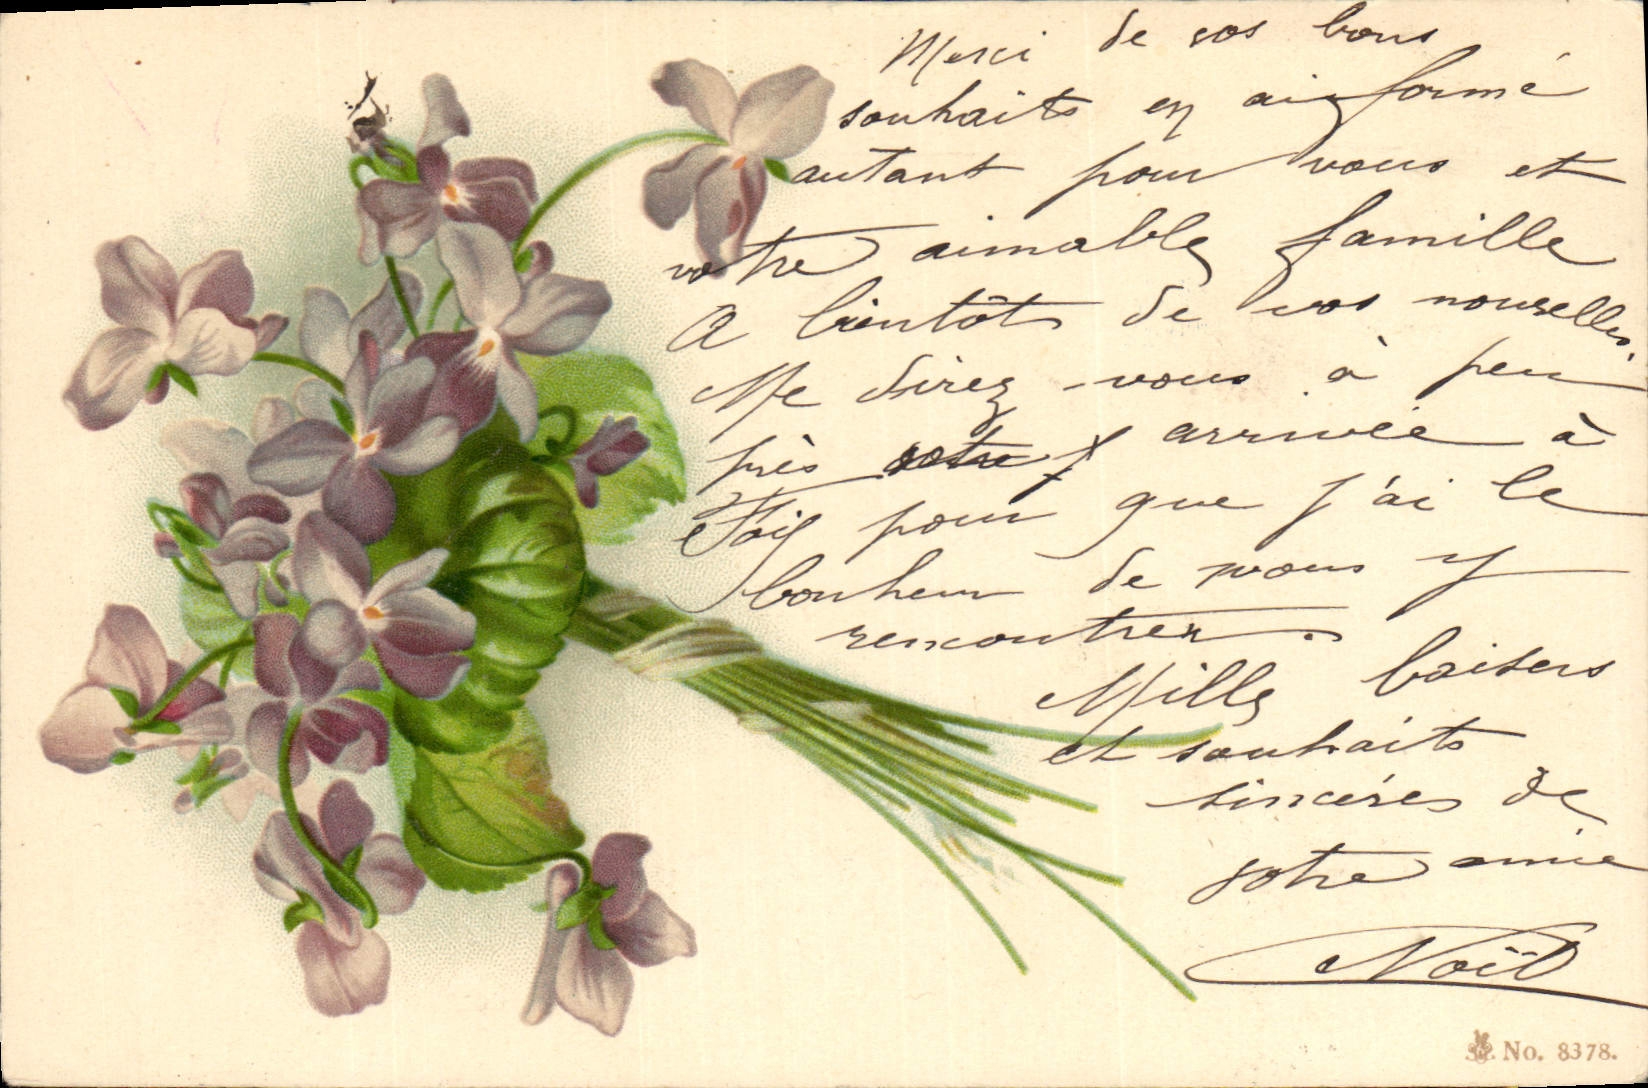 Merci de vos bons
souhaits en ai formé
autant pour vous et
votre aimable famille
A bientôt de vos nouvelles.
Me direz-vous à peu
près votre arrivée à
pour que j'ai le
bonheur de vous y
rencontrer.
Mille baisers
et souhaits
sincéres de
votre amie
Noël
No. 8378.